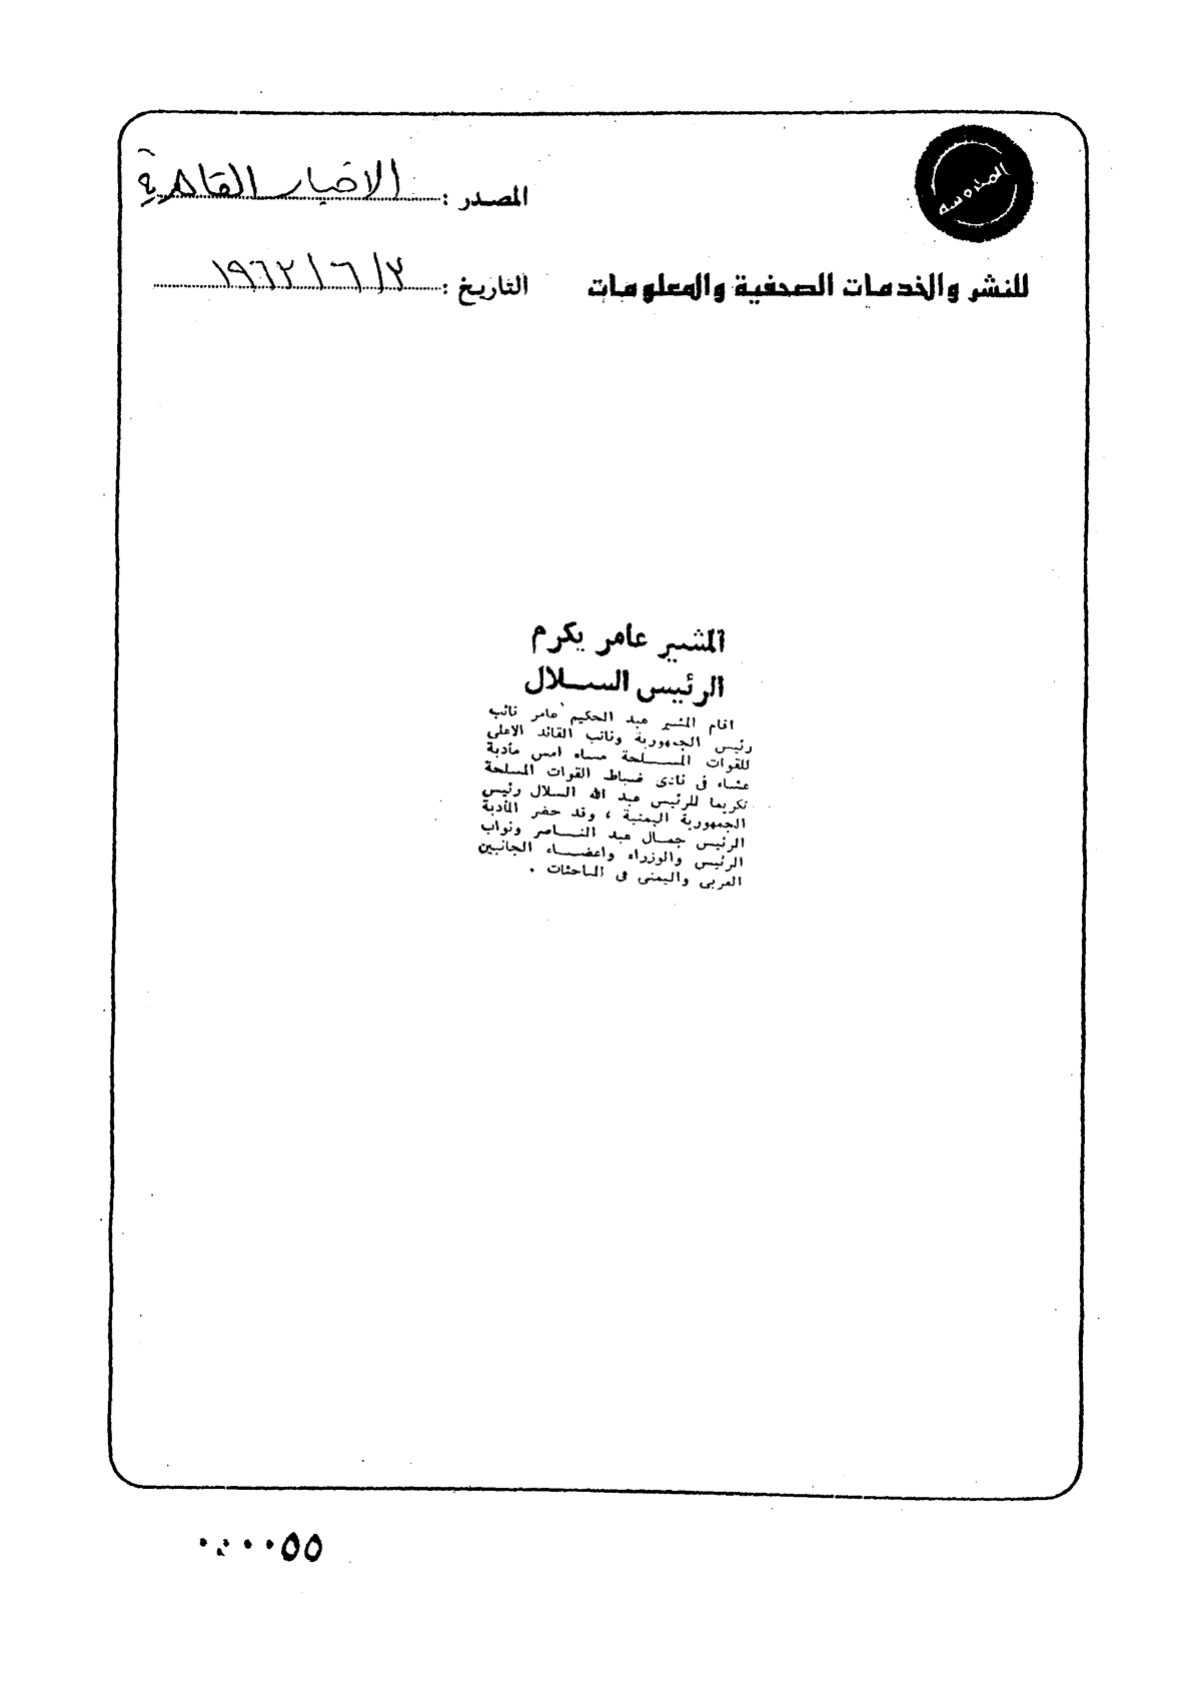 المصدر : الاخبار القاهرية
للنشر والخدمات الصحفية والمعلومات
التاريخ : ٢/٦/١٩٦٢
المشير عامر يكرم
الرئيس السلال
اقام المشير عبد الحكيم عامر نائب
رئيس الجمهورية ونائب القائد الاعلى
للقوات المسلحة مساء امس مأدبة
عشاء فى نادى ضباط القوات المسلحة
تكريما للرئيس عبد الله السلال رئيس
الجمهورية اليمنية ، وقد حضر المأدبة
الرئيس جمال عبد الناصر ونواب
الرئيس والوزراء واعضاء الجانبين
العربى واليمنى فى المباحثات .